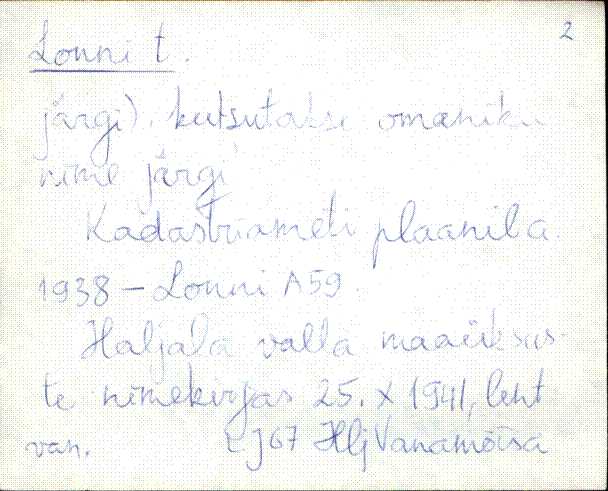 2
Lonni t.
järgi). kutsutakse omaniku
nime järgi
Kadastriameti plaanil a.
1938 - Lonni A59.
Haljala valla maaüksus-
te nimekirjas 25. X 1941, leht
van. EJ67 Hlj Vanamõisa